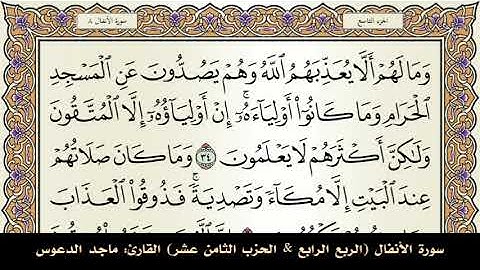 الجزء التاسع
سورة الأنفال ٨
وَمَا لَهُمْ أَلَّا يُعَذِّبَهُمُ اللَّهُ وَهُمْ يَصُدُّونَ عَنِ الْمَسْجِدِ
الْحَرَامِ وَمَا كَانُوا أَوْلِيَاءَهُ ۚ إِنْ أَوْلِيَاؤُهُ إِلَّا الْمُتَّقُونَ
وَلَٰكِنَّ أَكْثَرَهُمْ لَا يَعْلَمُونَ ٣٤ وَمَا كَانَ صَلَاتُهُمْ
عِندَ الْبَيْتِ إِلَّا مُكَاءً وَتَصْدِيَةً ۚ فَذُوقُوا الْعَذَابَ
سورة الأنفال (الربع الرابع & الحزب الثامن عشر) القارئ: ماجد الدعوس